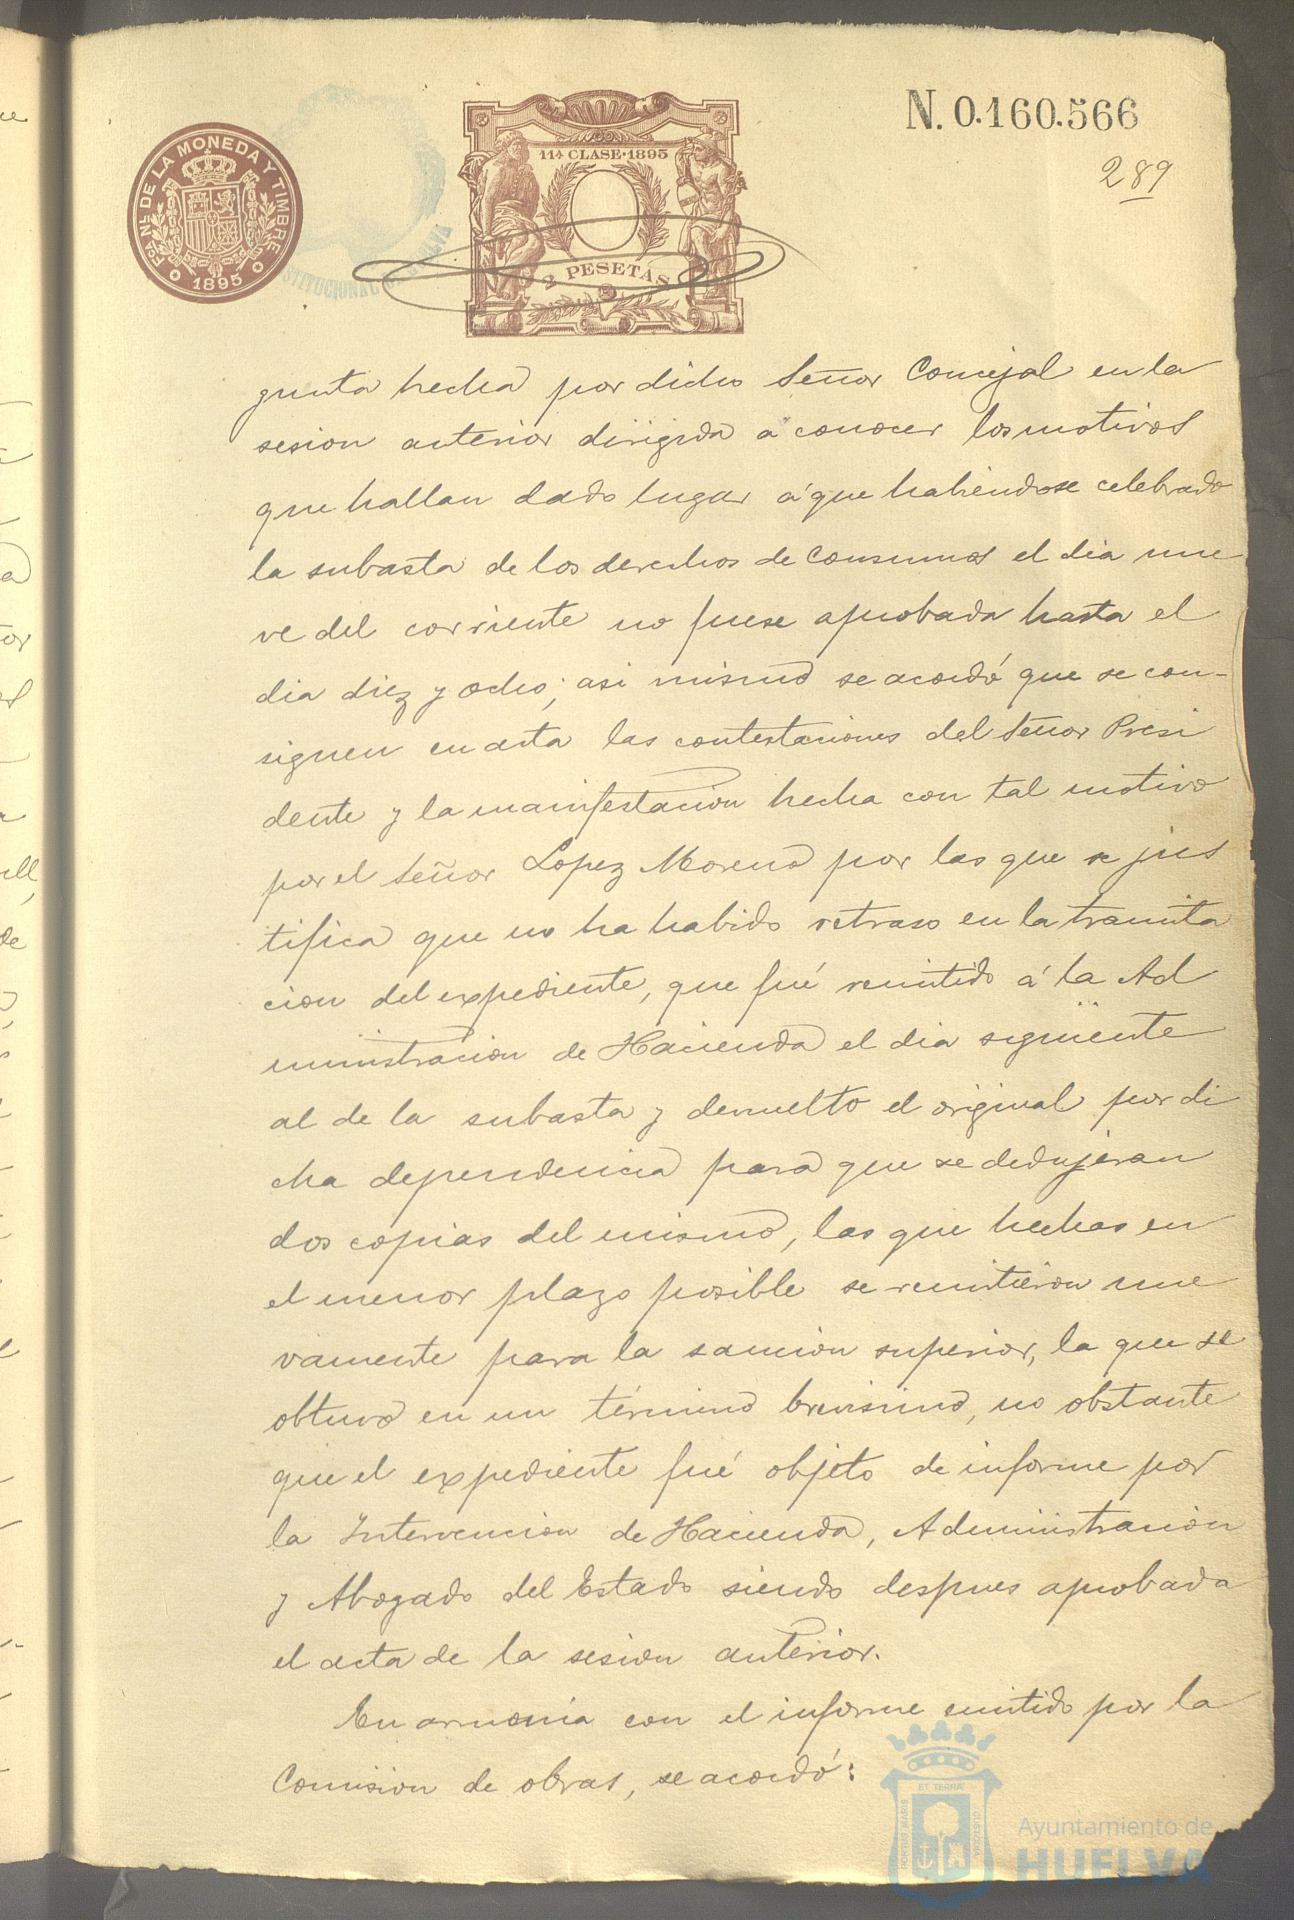 N. 0.160.566
289
FCA. NL. DE LA MONEDA Y TIMBRE
1895
11ª CLASE·1895
2 PESETAS
gunta hecha por dicho Señor Concejal en la
sesion anterior dirigida a conocer los motivos
que hallan dado lugar á que habiéndose celebrado
la subasta de los derechos de Consumos el dia nue
ve del corriente no fuese aprobada hasta el
dia diez y ocho; asi mismo se acordó que se con-
signen en acta las contestaciones del Señor Presi
dente y la manifestacion hecha con tal motivo
por el Señor Lopez Moreno por las que se jus
tifica que no ha habido retraso en la tramita
cion del expediente, que fué remitido á la Ad
ministracion de Hacienda el dia siguiente
al de la subasta y devuelto el original por di
cha dependencia para que se dedujeran
dos copias del mismo, las que hechas en
el menor plazo posible se remitieron nue
vamente para la sancion superior, la que se
obtuvo en un término brevisimo, no obstante
que el expediente fué objeto de informe por
la Intervencion de Hacienda, Administracion
y Abogado del Estado siendo despues aprobada
el acta de la sesion anterior.
En armonia con el informe emitido por la
Comision de obras, se acordó:
PORTUS MARIS
ET TERRÆ
CUSTODIA
Ayuntamiento de
HUELVA